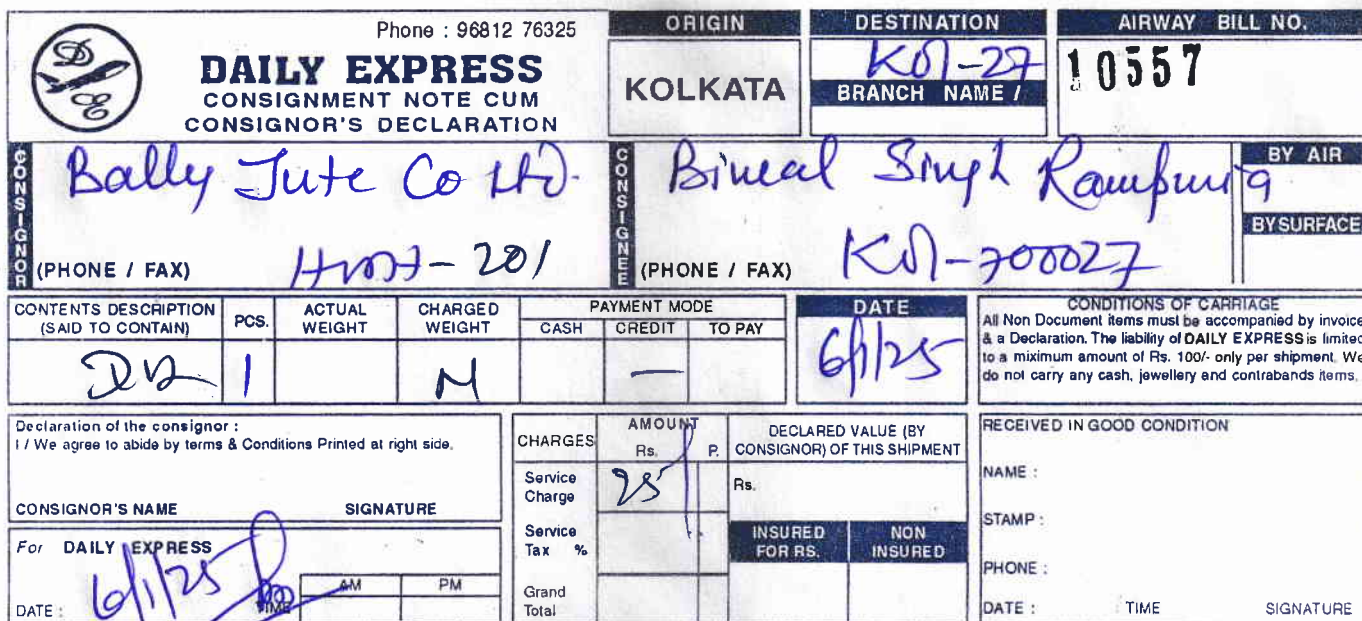 Phone : 96812 76325
DAILY EXPRESS
CONSIGNMENT NOTE CUM
CONSIGNOR'S DECLARATION
ORIGIN
KOLKATA
DESTINATION
Kol-27
BRANCH NAME /
AIRWAY BILL NO.
10557
CONSIGNOR
Bally Jute Co Ltd.
(PHONE / FAX)
- 201
CONSIGNEE
Bimal Singh Rampuria
(PHONE / FAX)
Kol-700027
BY AIR
BY SURFACE
CONTENTS DESCRIPTION
(SAID TO CONTAIN)
PCS.
ACTUAL
WEIGHT
CHARGED
WEIGHT
PAYMENT MODE
CASH
CREDIT
TO PAY
1
N
—
DATE
6/1/25
CONDITIONS OF CARRIAGE
All Non Document items must be accompanied by invoice
& a Declaration. The liability of DAILY EXPRESS is limited
to a miximum amount of Rs. 100/- only per shipment. We
do not carry any cash, jewellery and contrabands items.
Declaration of the consignor :
I / We agree to abide by terms & Conditions Printed at right side.
CONSIGNOR'S NAME
SIGNATURE
For DAILY EXPRESS
6/1/25
DATE :
TIME
AM
PM
CHARGES
AMOUNT
Rs.
P.
Service
Charge
25
Service
Tax %
Grand
Total
DECLARED VALUE (BY
CONSIGNOR) OF THIS SHIPMENT
Rs.
INSURED
FOR RS.
NON
INSURED
RECEIVED IN GOOD CONDITION
NAME :
STAMP :
PHONE :
DATE :
TIME
SIGNATURE